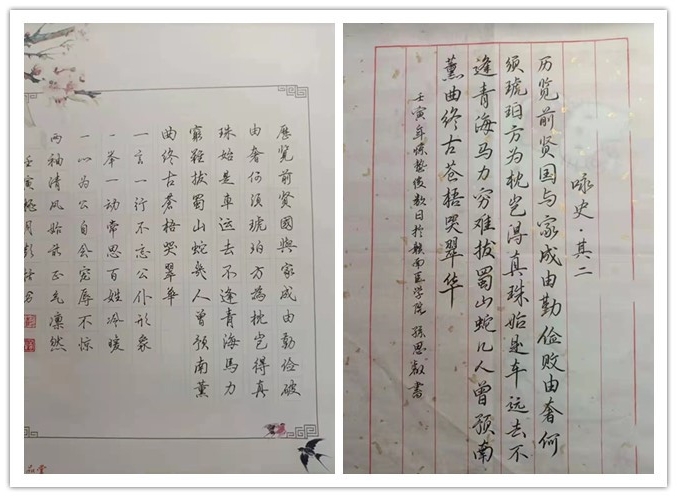 歷覽前賢國與家成由勤儉破
由奢何須琥珀方為枕豈得真
珠始是車遠去不逢青海馬力
窮難拔蜀山蛇幾人曾預南薰
曲終古蒼梧哭翠華
一言一行不忘公仆形象
一举一动常思百姓冷暖
一心为公自会宠辱不惊
两袖清风始 正气凛然
壬寅 月彭 书
咏史·其二
历览前贤国与家成由勤俭败由奢何
须琥珀方为枕岂得真珠始是车远去不
逢青海马力穷难拔蜀山蛇几人曾预南
薰曲终古苍梧哭翠华
壬寅年惊蛰后数日于赣南医学院 孙思 書